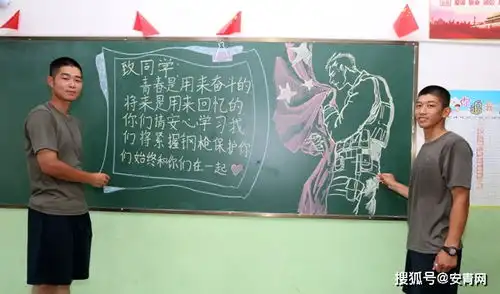 致同学:
青春是用来奋斗的
将来是用来回忆的
你们请安心学习我
们将紧握钢枪保护你
们始终和你们在一起
搜狐号@安青网